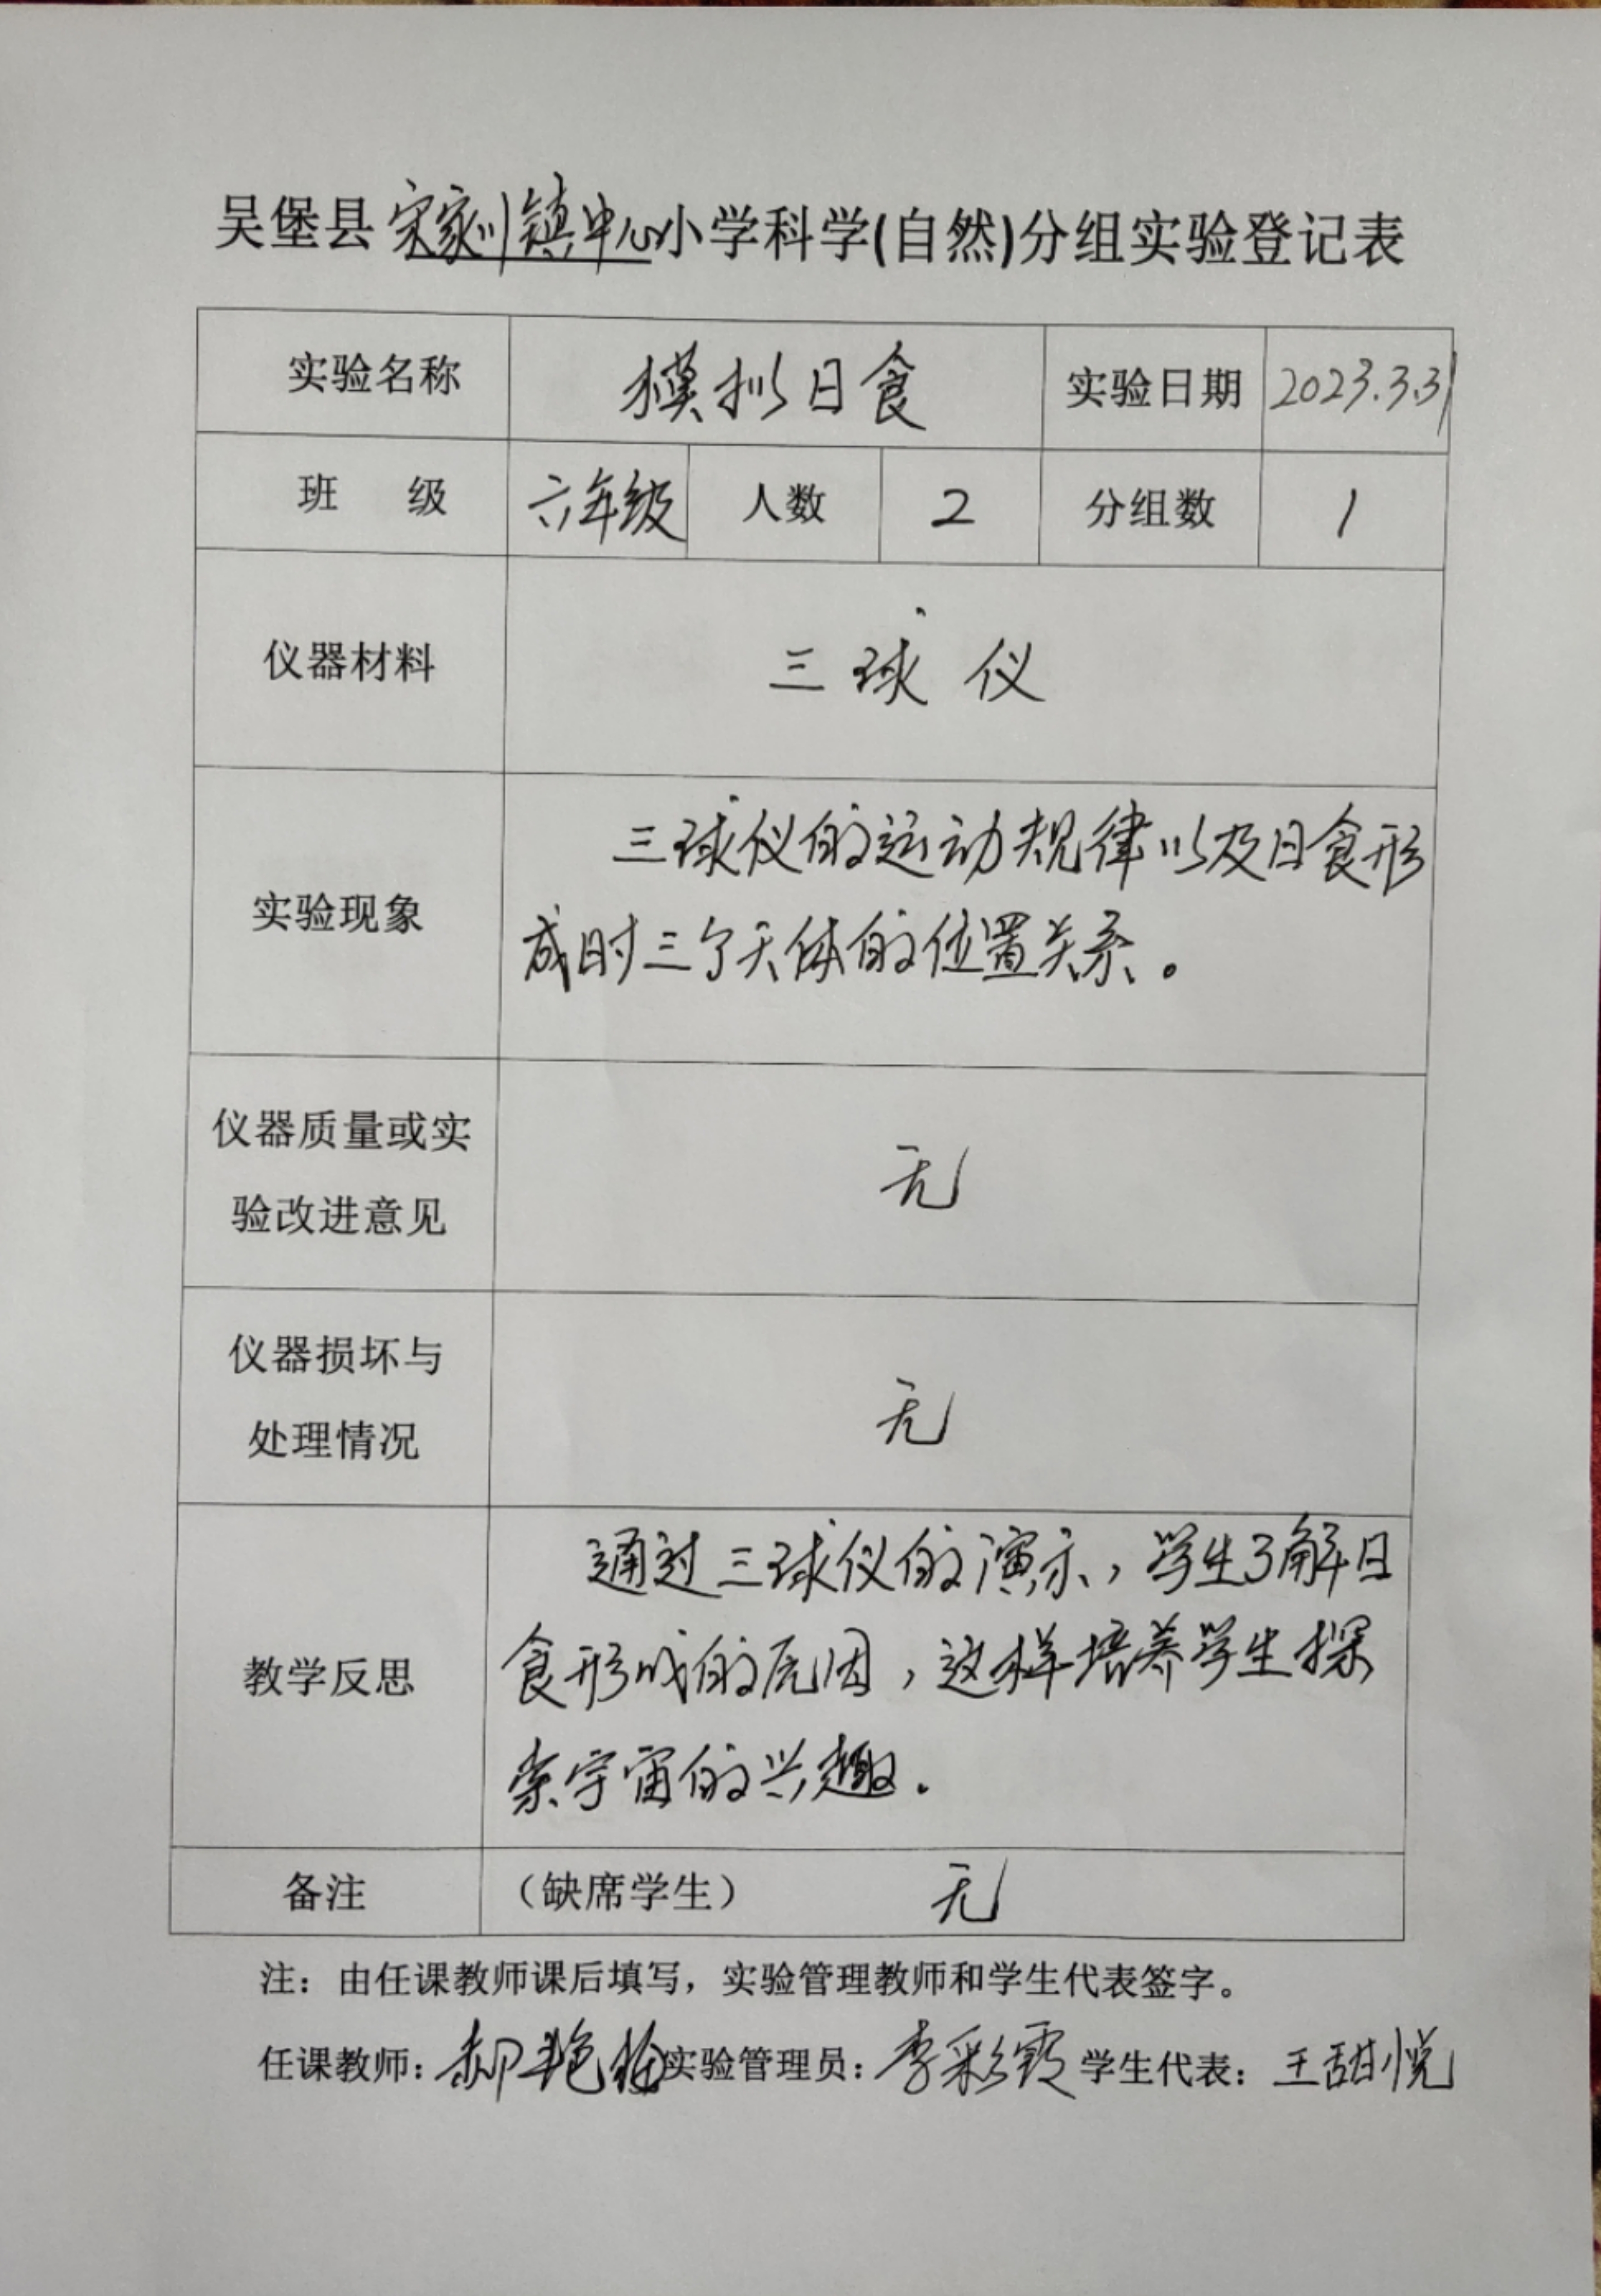 吴堡县宋家川镇中心小学科学(自然)分组实验登记表
实验名称 模拟日食 实验日期 2023.3.31
班 级 六年级 人数 2 分组数 1
仪器材料 三球仪
实验现象
三球仪的运动规律以及日食形
成时三个天体的位置关系。
仪器质量或实
验改进意见
无
仪器损坏与
处理情况
无
教学反思
通过三球仪的演示，学生了解日
食形成的原因，这样培养学生探
索宇宙的兴趣.
备注 （缺席学生） 无
注：由任课教师课后填写，实验管理教师和学生代表签字。
任课教师：郝艳 实验管理员：李彩霞 学生代表：王甜悦